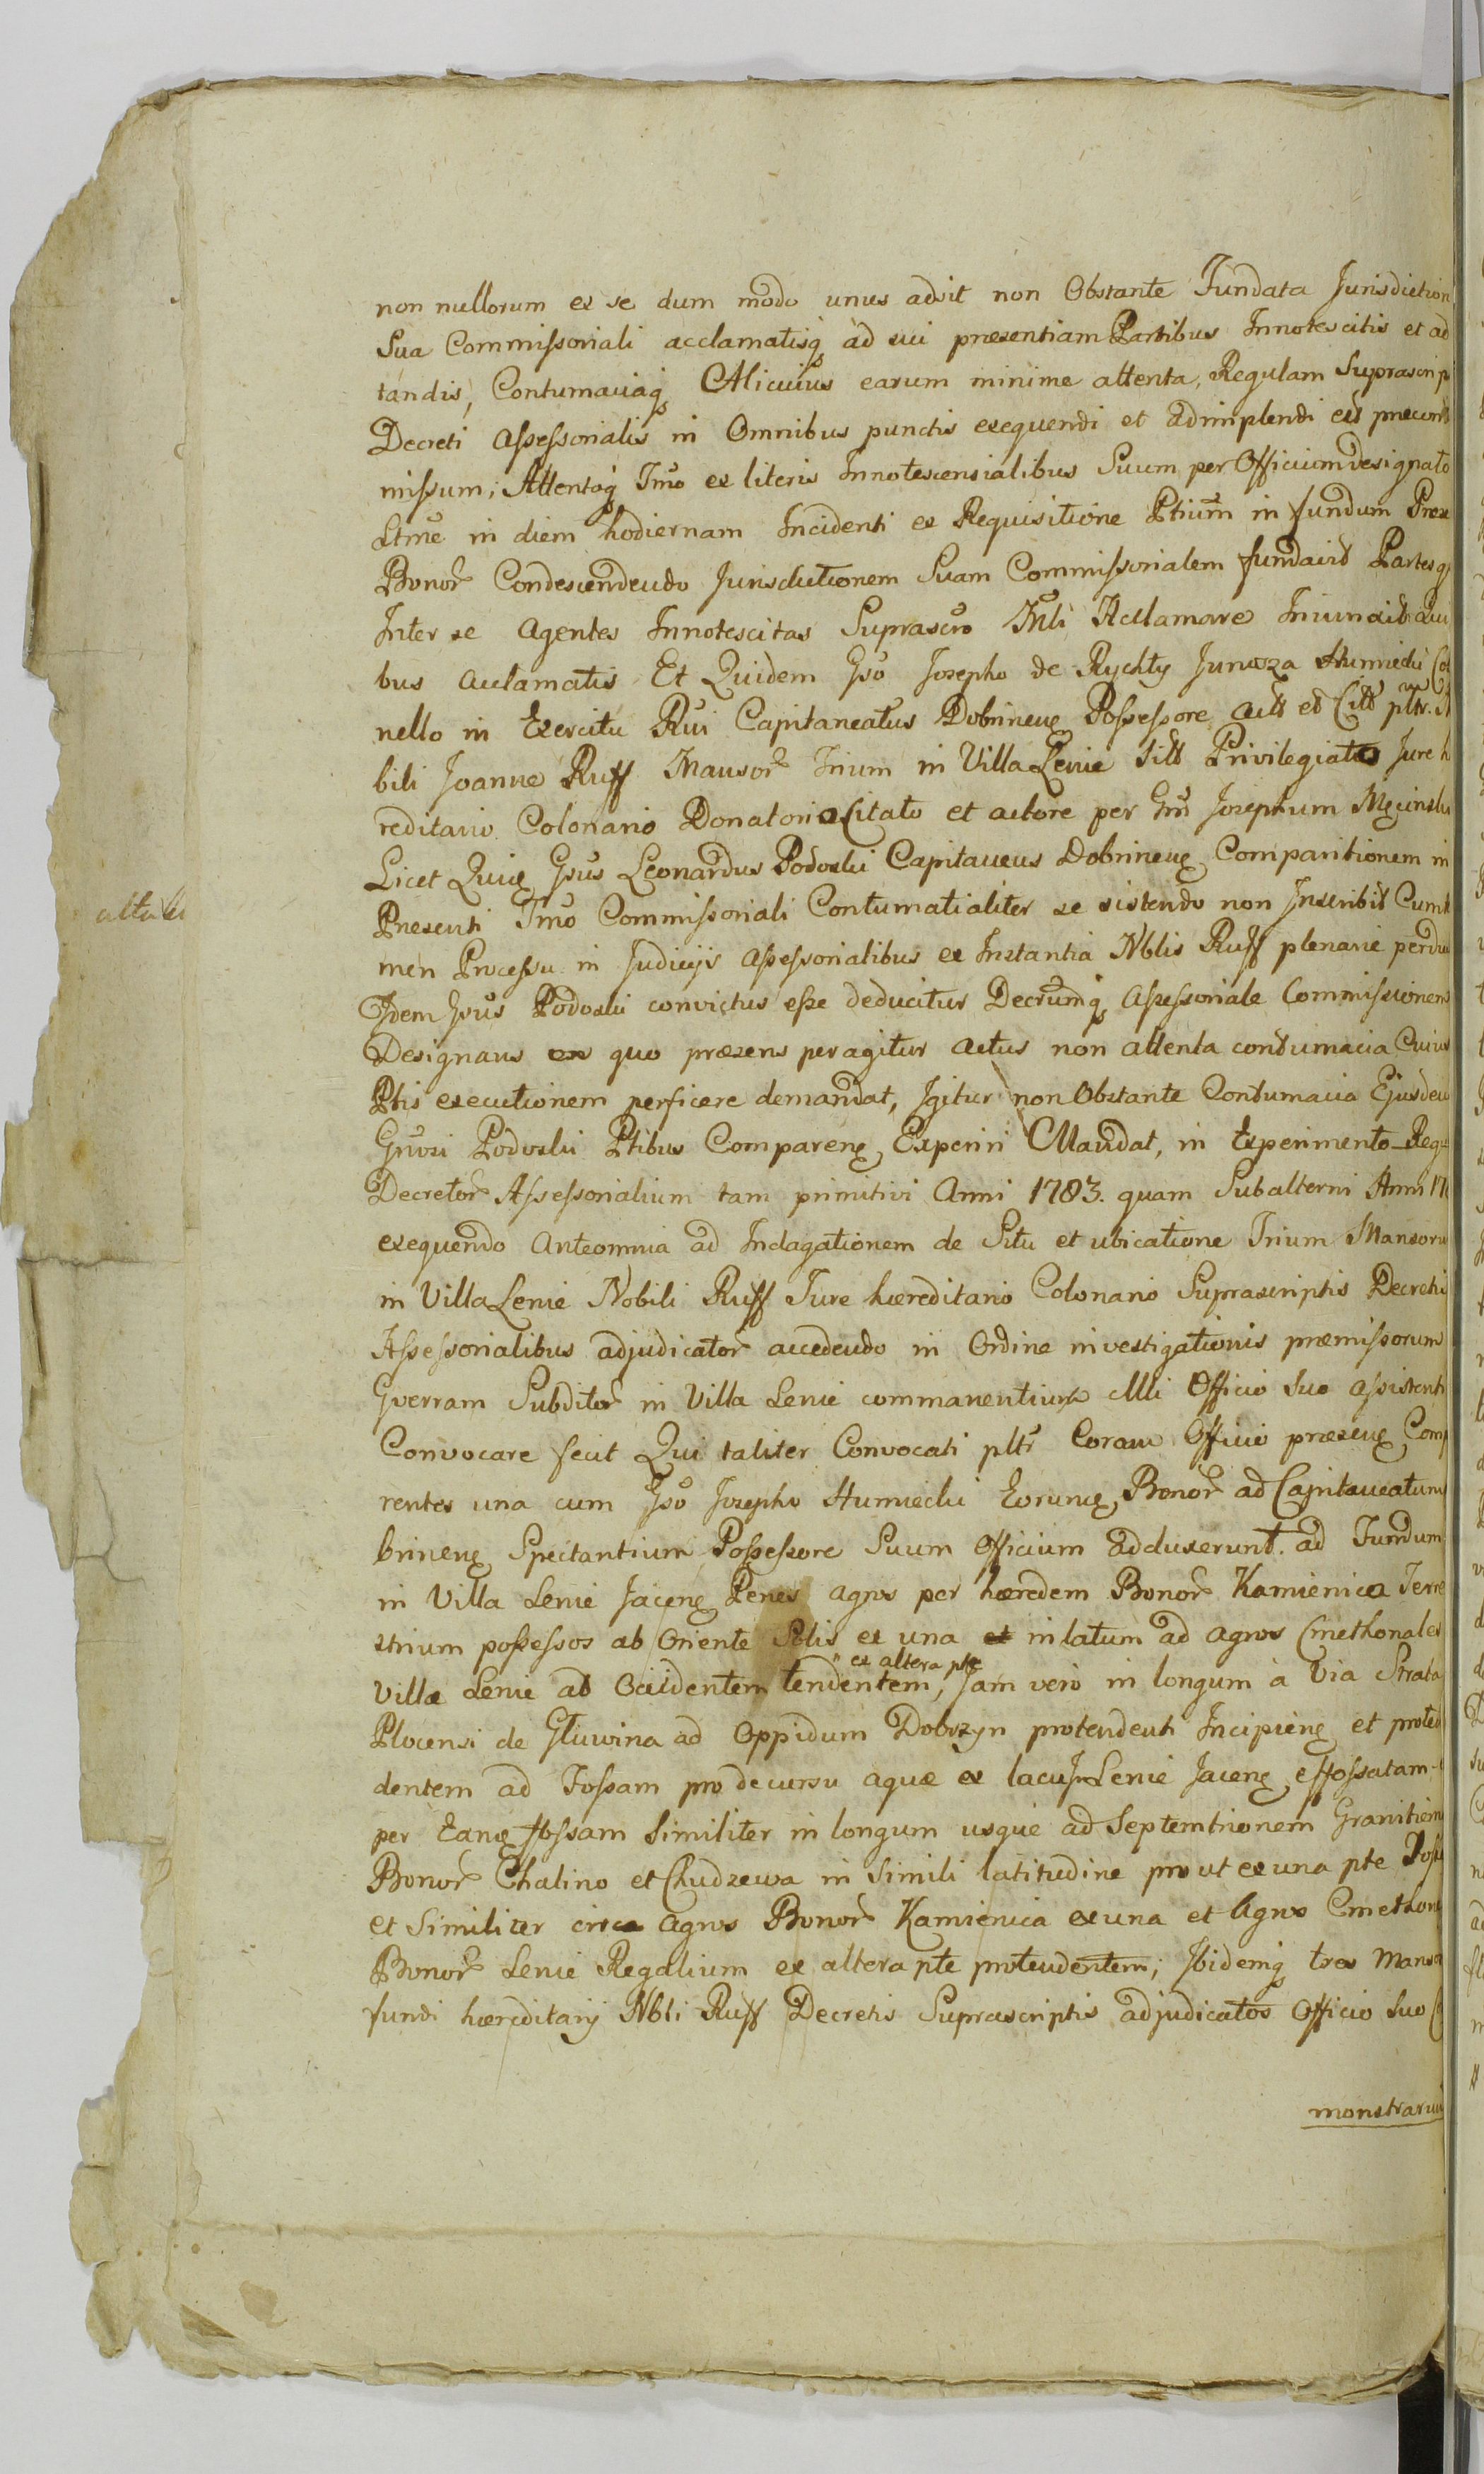 non nullorum ex se dum modo unus adsit non Obstante Fundata Jurisdiction
Sua Commissoriali acclamatisq ad sui præsentiam Partibus Innotescitis et ad
tandis, Contumaciaq Alicuius earum minime attenta, Regulam Suprascrip
Decreti Assessorialis in Omnibus punctis exequendi et adimplendi est
missum; Attentoq Tmo ex literis Innotescensialibus Suum per Officium designato
Ltme in diem hodiernam Incidenti ex Requisitione Ptium in fundum Præ
Bonor Condescendendo Jurisdictionem Suam Commissorialem fundavit Partesq
Inter se Agentes Innotescitas Suprascro Acclamare Iniunxit Qui
bus acclamatis Et Quidem Gso Josepho de Rychty Junosza Humiecki Col
nello in Exercitu Rni Capitaneatus Dobrinen Possessore act et Citt pltr. 
bili Joanne Ruff Mansor Trium in Villa Lenie sitt Privilegiato Jure h
reditario Colonario Donatorio Citato et actore per Gm Josephum Męcinski
Licet Quie Gsus Leonardus Podoski Capitaneus Dobrinen Comparitionem in
Præsenti Tmo Commissoriali Contumatialiter se sistendo non Inscribit Cum
men Processu in Judicijs Assessorialibus ex Instantia Nblis Ruff plenarie perdu
Idem Gsus Podoski convictus esse deducitur Decrumq Assessoriale Commissionem
Designans ex quo præsens peragitur actus non attenta contumacia Cuius
Ptis executionem perficere demandat, Igitur non Obstante Contumacia Ejusdem
Gnosi Podoski Ptibus Comparen Experiri Mandat, in Experimento Reg
Decretor Assessorialium tam primitivi Anni 1783. quam Subalterni Anni 17
exequendo Anteomnia ad Indagationem de Situ et ubicatione Trium Mansoru
in Villa Lenie Nobili Ruff Jure hæreditario Colonario Suprascriptis Decretis
Assessorialibus adjudicator accedendo in Ordine investigationis præmissorum
Gverram Subditor in Villa Lenie commanentium Officio suo assistenti
Convocare fecit Qui taliter Convocati pltr Coram Officio præsen Comp
rentes una cum Gso Josepho Humiecki Eorunq Bonor ad Capitaneatum
brinen Spectantium Possessore Suum Officium adduxerunt. ad Fundum
in Villa Lenie Jacen Penes agros per hæredem Bonor Kamienica Terre
strium possessos ab Oriente Solis ex una et in latum ad agros Cmethonales
" ex altera pte
Villæ Lenie ab Occidentem tendentem, Jam vero in longum à Via Strata
Plocensi de Gluwina ad Oppidum Dobrzyn protendenti Incipien et proted
dentem ad Fossam pro decursu aquæ ex lacu Lenie Jacen effossatam
per Eanq fossam Similiter in longum usque ad Septemtrionem Granitiem
Bonor Chalino et Chudzewa in Simili latitudine prout ex una pte
et Similiter circa Agros Bonor Kamienica ex una et Agros Cmethon
Bonor Lenie Regalium ex altera pte protendentem; Ibidemq tres Manso
fundi hæreditarij Nbli Ruff Decretis Suprascriptis adjudicatos Officio Suo
monstrarun